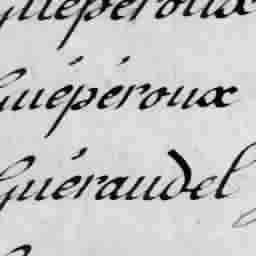 Guépéroux
Guépéroux
Guéraudel